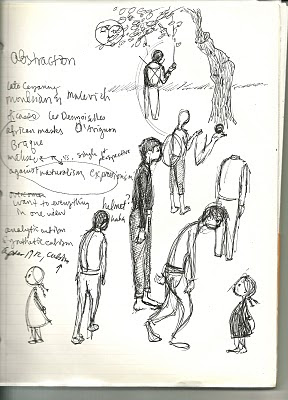 abstraction
late cezanne
mondrian & malevich
picasso les Desmoiselles
african masks D'Avignon
Braque
matisse single pt perspective
against naturalism expressionism
want to everything
in one view
helmet?
haha
analytic cubism
synthetic cubism
cubism